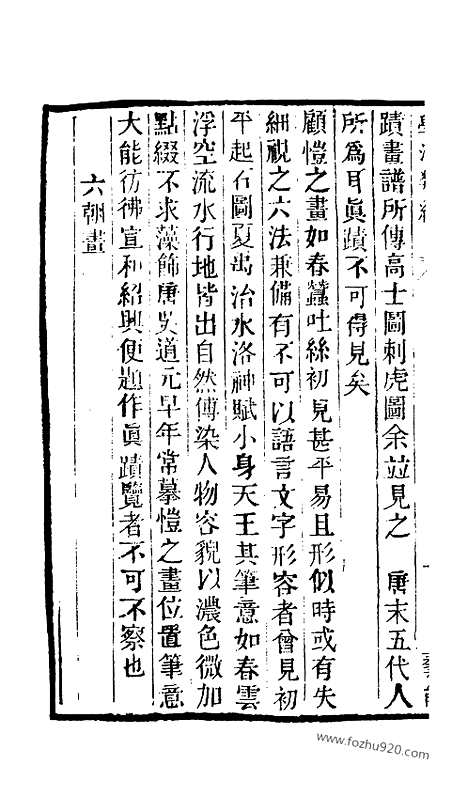 蹟畫譜所傳高士圖刺虎圖余並見之　唐末五代人
所爲耳眞蹟不可得見矣
顧愷之畫如春蠶吐絲初見甚平易且形似時或有失
細視之六法兼備有不可以語言文字形容者曾見初
平起石圖夏禹治水洛神賦小身天王其筆意如春雲
浮空流水行地皆出自然傅染人物容貌以濃色微加
點綴不求藻飾唐吳道元早年常摹愷之畫位置筆意
大能彷彿宣和紹興便題作眞蹟覽者不可不察也
六朝畫
www.fozhu920.com